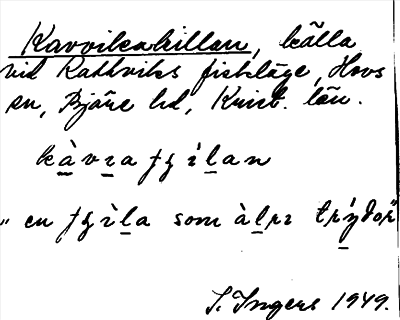 Kavvikakillan, källa
vid Kattviks fiskläge, Hovs
sn, Bjäre hd, Krist. län.
kàvɪa ʃʒ ìlan
" en ʃʒìla som àlrɪ trýdör"
I. Ingers 1949.